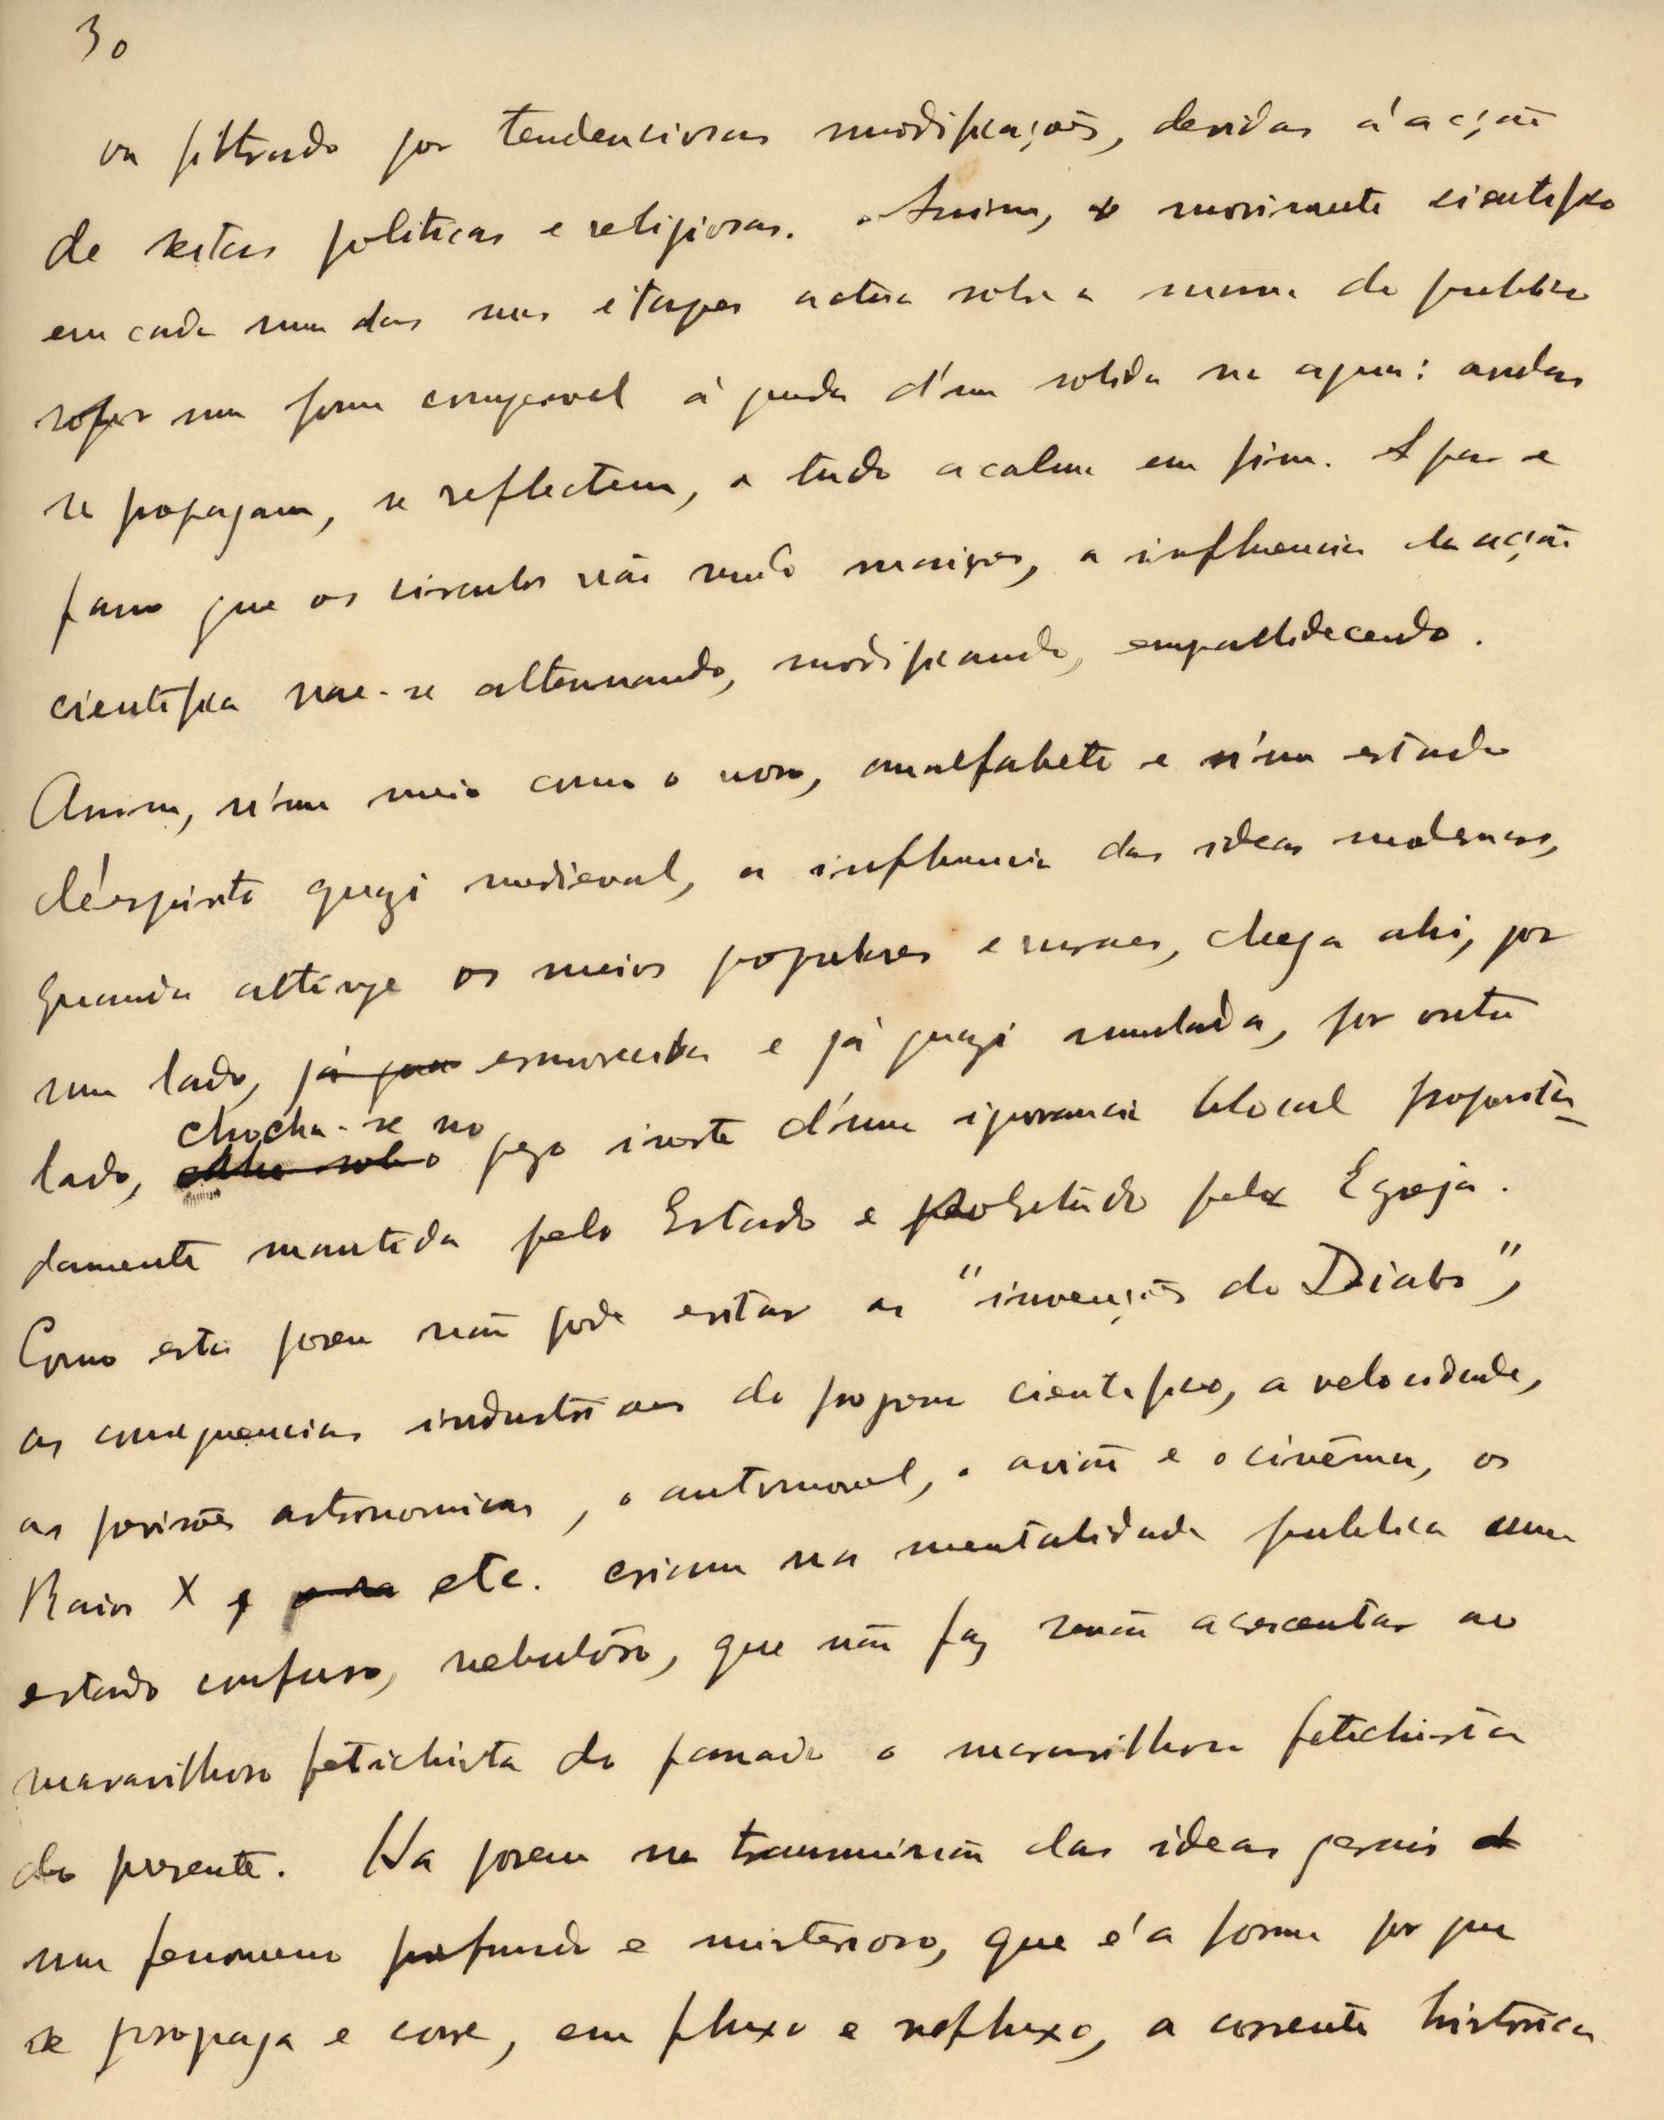 30
ou filtrado por tendenciosas modificações, devidas á acção
de seitas politicas e religiosas. Assim, o movimento cientifico
em cada uma das suas étapes actua sobre a massa do publico
sofre uma forma comparavel á queda d'um solido na agua: ondas
se propagam, se reflectem, e tudo acalma em fim. A par e
passo que os circulos vão sendo maiores, a influencia da acção
cientifica vae-se attenuando, modificando, empallidecendo.
Assim, n'um meio como o nosso, analfabeto e n'um estado
d'espirito quazi medieval, a influencia das ideas modernas,
quando attinge os meios populares e ruraes, chega ahi, por
um lado, já qua esmorecida e já quazi mudada, por outro
lado, chocha-se no pego inerte d'uma ignorancia local proposita-
damente mantida pelo Estado e pela Egreja.
Como esta porem não pode evitar as "invenções do Diabo",
as consequencias industriaes do progresso cientifico, a velocidade,
as previsões astronomicas, o automovel, o avião e o cinêma, os
Raios X e etc. criam na mentalidade publica um
estado confuso, nebulôso, que não faz senão acrescentar ao
maravilhoso fetichista do passado o maravilhoso fetichista
do presente. Ha porem na transmissão das ideas gerais
um fenomeno profundo e misterioso, que é a forma por que
se propaga e corre, em fluxo e refluxo, a corrente historica